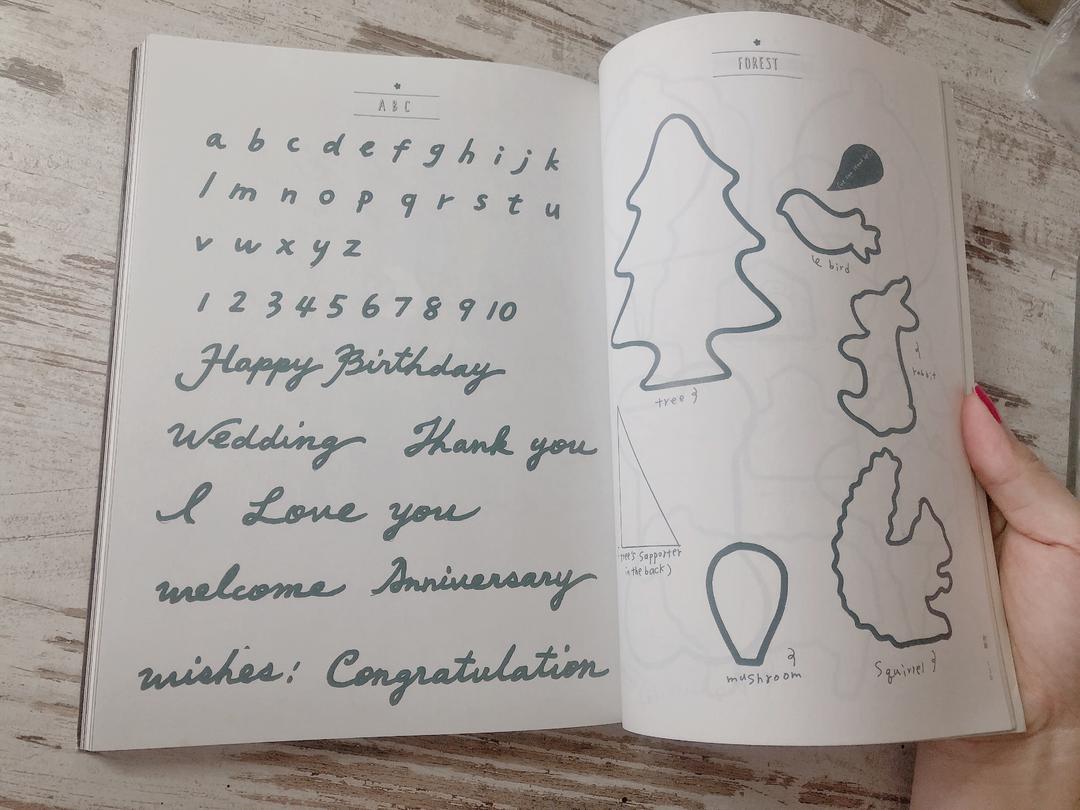 ABC
a b c d e f g h i j k
l m n o p q r s t u
v w x y z
1 2 3 4 5 6 7 8 9 10
Happy Birthday
Wedding Thank you
I Love you
welcome Anniversary
wishes! Congratulation
FOREST
bird
rabbit
tree
tree's Sapporter
in the back)
mushroom
Squirrel